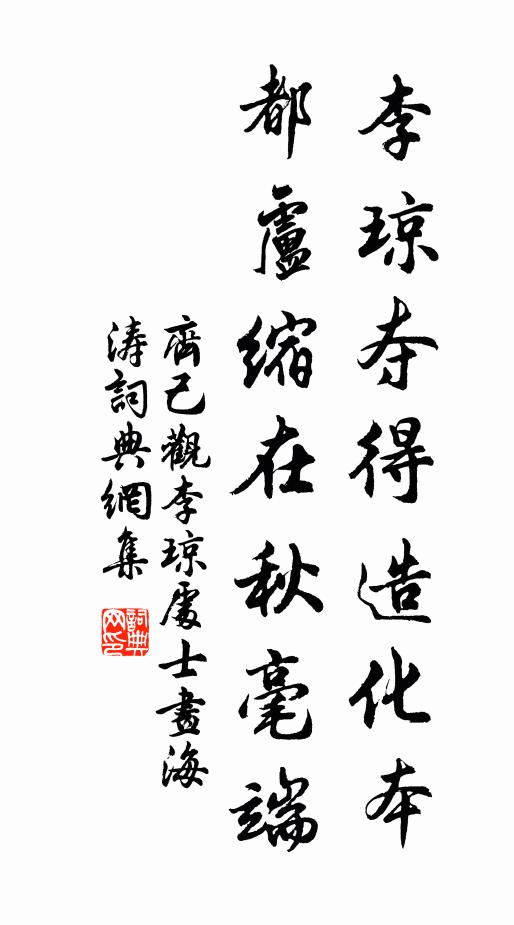 李琼夺得造化本
都盧缩在秋毫端
齊己觀李琼處士畫海
涛詞典網集
詞典
网印